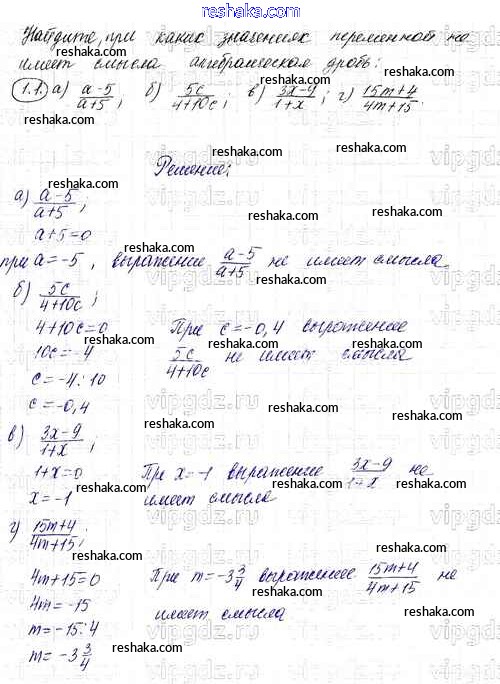 www.reshaka.com
Найдите, при каких значениях переменной не
имеет смысла алгебраическая дробь:
1.1. а) (a-5)/(a+5); б) 5c/(4+10c); в) (3x-9)/(1+x); г) (15m+4)/(4m+15).
Решение:
а) (a-5)/(a+5);
a+5=0
при a=-5, выражение (a-5)/(a+5) не имеет смысла
б) 5c/(4+10c);
4+10c=0 При c=-0,4 выражение
10c=-4 5c/(4+10c) не имеет смысла
c=-4:10
c=-0,4
в) (3x-9)/(1+x);
1+x=0 При x=-1 выражение (3x-9)/(1+x) не
x=-1 имеет смысла
г) (15m+4)/(4m+15);
4m+15=0 При m=-3 3/4 выражение (15m+4)/(4m+15) не
4m=-15 имеет смысла
m=-15:4
m=-3 3/4
reshaka.com
vipgdz.ru